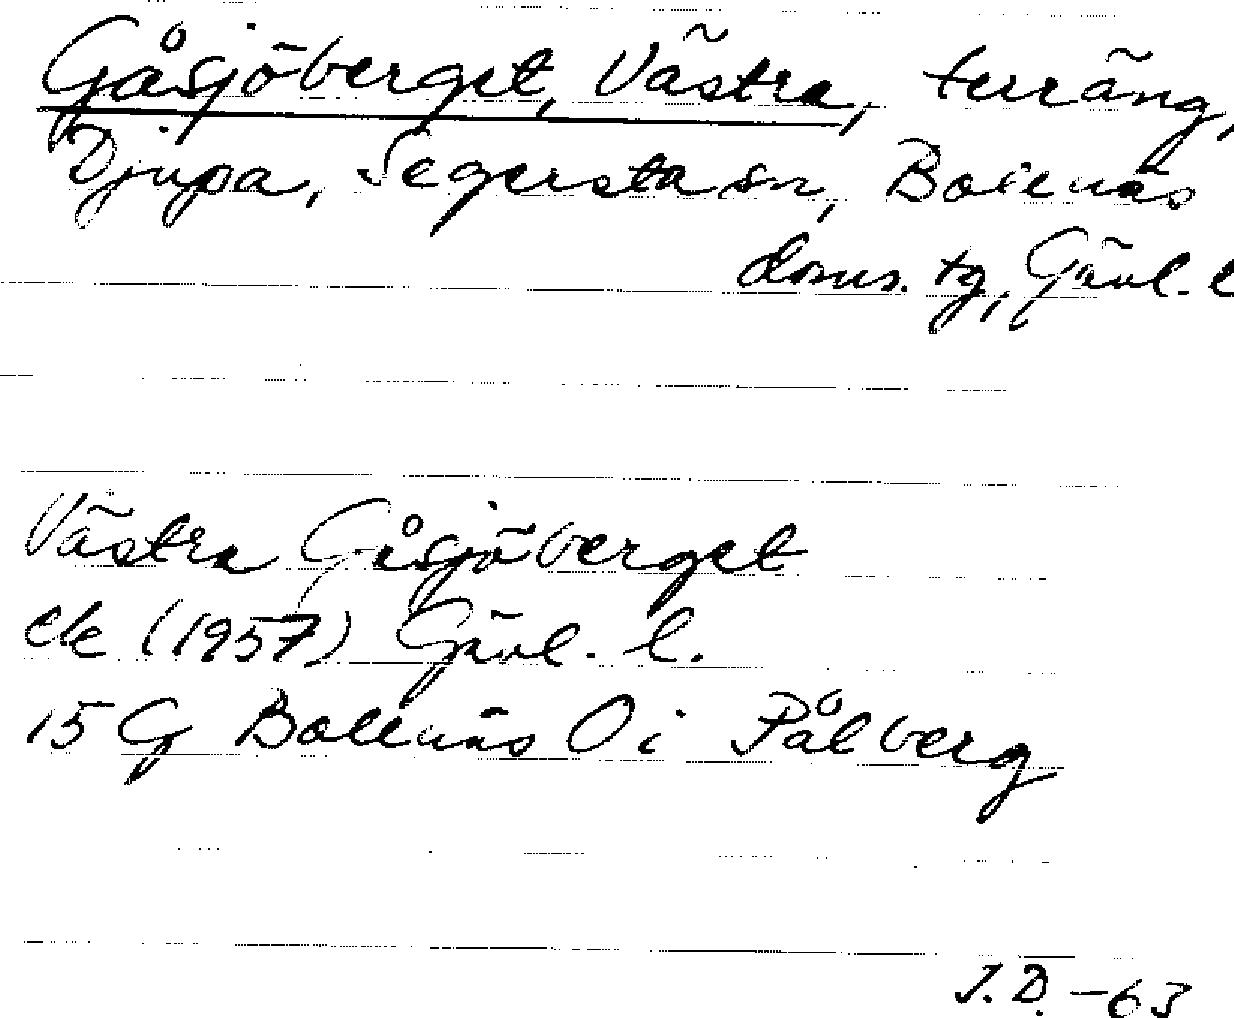 Gåsjöberget, Västra, terräng,
Djupa, Segersta sn, Bollnäs
doms. tg, Gävl. l
Västra Gåsjöberget
ek (1957) Gävl. l.
15 G Bollnäs O i Pålberg
J. D. -63